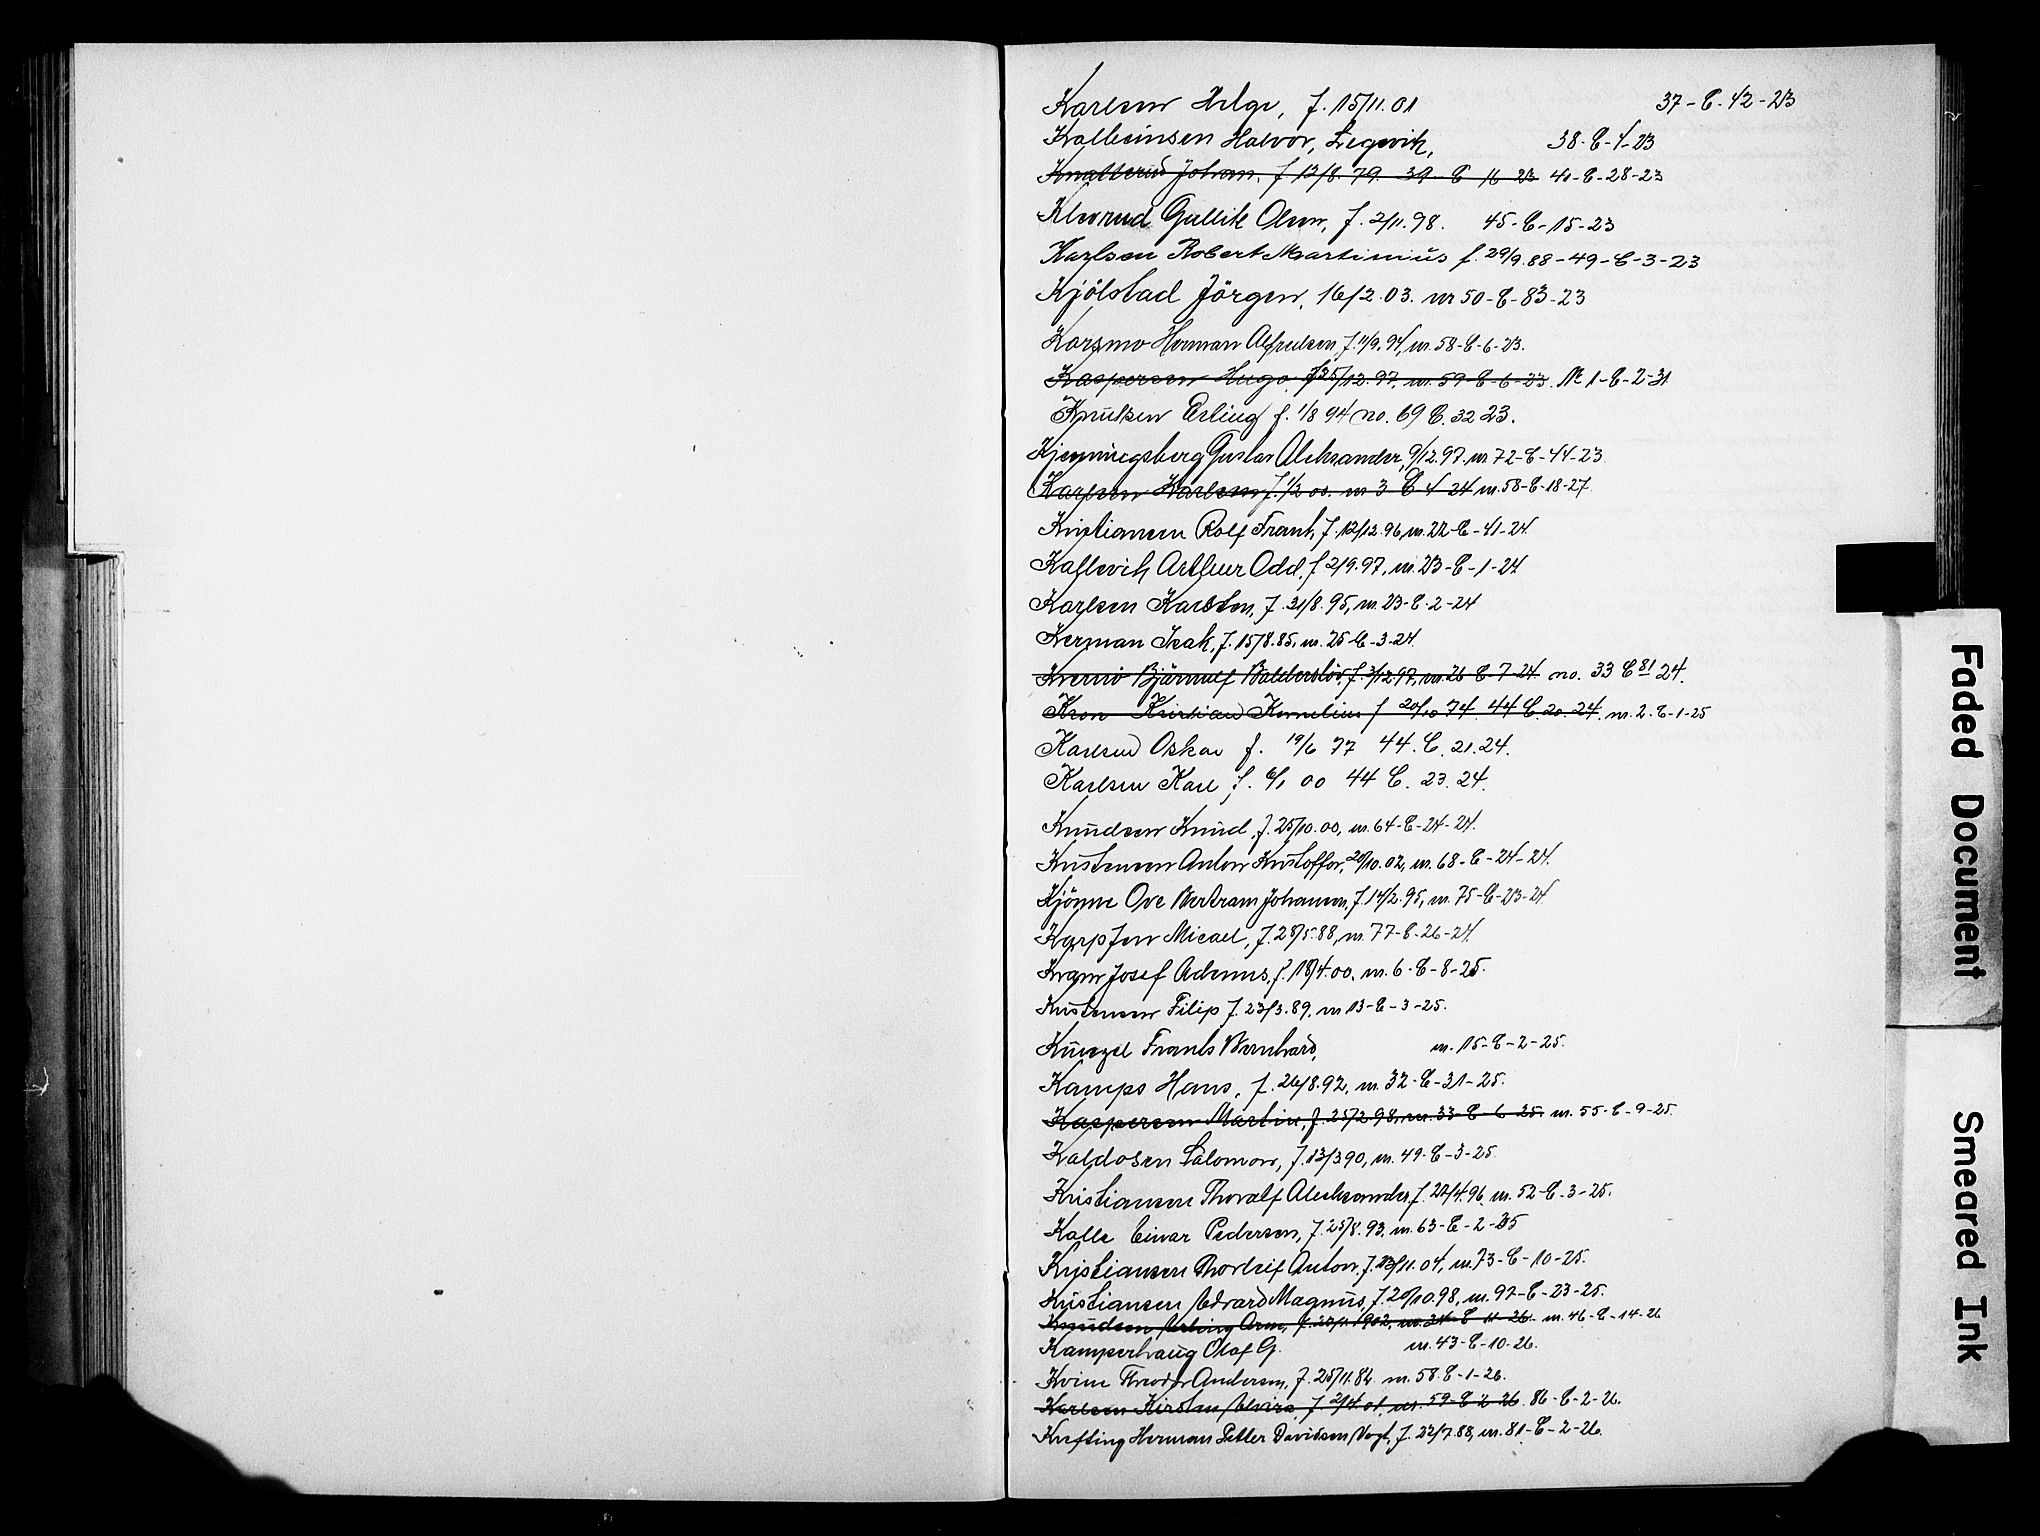 Karlsen Helge, f. 15/11.01 37-C-42-23
Kolbeinsen Halvor, Segevik, 38-C-1-23
Knatterud Johan, f 12/8. 79. 39-C 16 23 41-C-28-23
Klevrud Gullik Olsen, f. 2/11.98. 45-C-15-23
Karlsen Robert Martinius f. 29/9.88-49-C-3-23
Kjölstad Jörgen, 16/2.03. nr 50-C-83-23
Korsmo Herman Alfredsen, f. 1/9.94, nr. 58-C-6-23.
Kaspersen Hugo, f 25/12.97, nr. 59-C-6-23. Nr 1-C-2-31
Knutsen Erling f. 1/8 94 no. 69 C. 32 23.
Kjenningsberg Gustav Aleksander, 9/12.97. nr 72-C-44-23
Karlsen Karlsen, f. 1/2 00. nr 3-C 4 24 nr. 58-C-18-27.
Kristiansen Rolf Frank, f. 12/12.96, nr. 22-C-41-24.
Kaflevik Arthur Odd, f 2/9.97, nr. 23-C-1-24
Karlsen Karsten, f. 31/8.95, nr. 23-C-2-24
Kerman Isak, f. 15/8.85, nr. 25-C-3-24.
Kvernö Bjärnulf Balderslöv, f. 3/12.97, nr. 26-C-7-24. no. 33 C 81 24.
Kron Kristian Kornelius f 20/10 74. 44 C. 20. 24. nr. 2-C-1-25
Karlsen Oskar f. 19/6 77 44. C. 21.24.
Karlsen Karl, f. 6/1 00 44 C. 23. 24.
Knudsen Knud, f. 25/10.00, nr. 64-C-24-24.
Kristensen Anton Kristoffer, 20/10.02, nr. 68-C-24-24.
Kjönne Ove Bertram Johansen, f. 14/2.95, nr. 75-C-23-24.
Karp Jon Micael, f. 28/5.88, nr. 77-C-26-24.
Kvam Josef Ademus, f. 18/4.00, nr. 6-C-8-25.
Kristensen Filip f. 23/3.89, nr 13-C-3-25.
Künzel Frants Bernhard, nr. 15-C-2-25.
Kamps Hans, f. 26/8.92, nr. 32-C-31-25.
Kaspersen Martin, f. 25/2.98, nr. 33-C-6-25. nr. 55-C-9-25.
Kaldosen Salomon, f. 13/3.90, nr. 49-C-3-25.
Kristiansen Thoralf Aleksander, f. 22/4.96, nr. 52-C-3-25.
Kalle Einar Pedersen, f. 25/8.93, nr. 63-C-2-25
Kristiansen Thorleif Anton, f. 23/11.04, nr. 73-C-10-25.
Kristiansen Edvard Magnus, f. 20/10.98, nr. 97-C-23-25.
Knudsen Erling Arne, f. 20/11 1902, nr. 34-C 11-26. nr. 46-C-14-26
Kamperhaug Olaf G. nr. 43-C-10-26.
Kvine Theodor Andersen, f. 25/11.84. nr. 58 C-1-26.
Karlsen Kirsten Elvira, f. 2/4 01, nr. 59-C 2-26. 86-C-2-26.
Krefting Herman Petter Davidsen Vogt, f. 22/7.88, nr. 81-C-2-26.
Faded Document
Smeared Ink